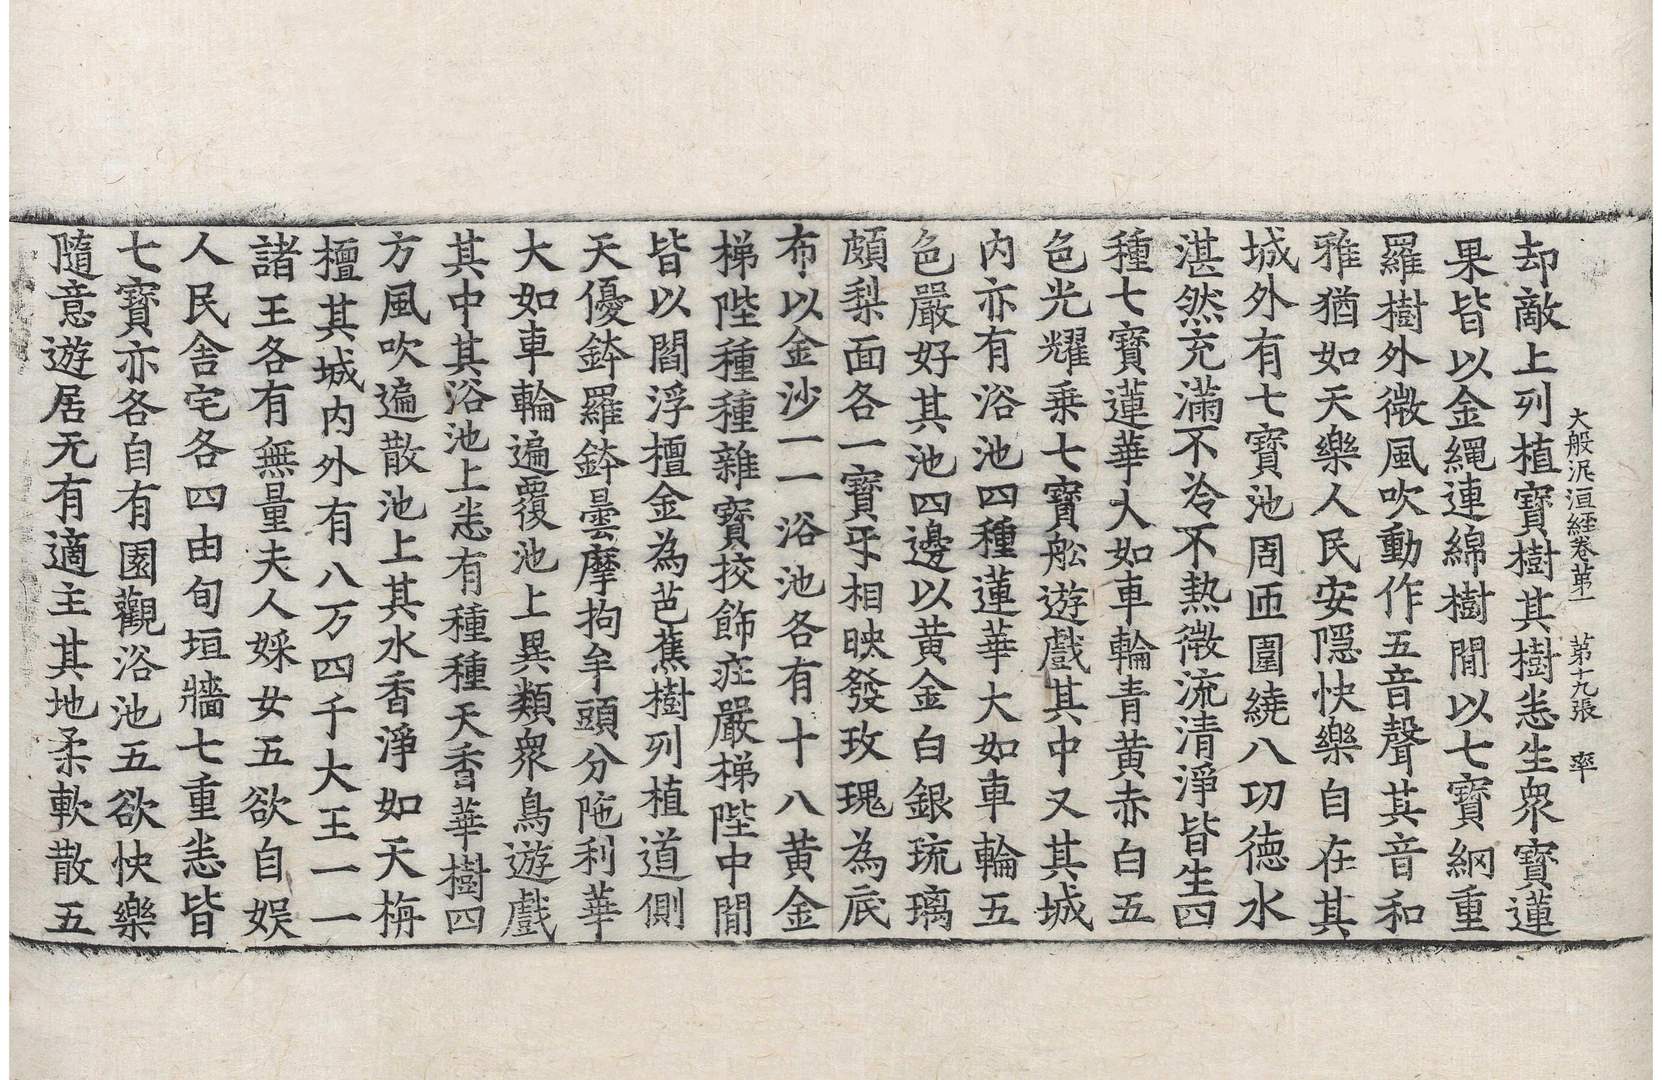 大般泥洹經卷第一　第十九張　率
却敵上列植寶樹其樹悉生衆寶蓮
果皆以金繩連綿樹間以七寶網重
羅樹外微風吹動作五音聲其音和
雅猶如天樂人民安隱快樂自在其
城外有七寶池周匝圍繞八功德水
湛然充滿不冷不熱微流清淨皆生四
種七寶蓮華大如車輪青黃赤白五
色光耀乗七寶舩遊戲其中又其城
內亦有浴池四種蓮華大如車輪五
色嚴好其池四邊以黃金白銀琉璃
頗梨面各一寶乎相映發玫瑰為底
布以金沙一一浴池各有十八黃金
梯陛種種雜寶挍飾莊嚴梯陛中間
皆以閻浮檀金為芭蕉樹列植道側
天優鉢羅鉢曇摩拘牟頭分陁利華
大如車輪遍覆池上異類衆鳥遊戲
其中其浴池上悉有種種天香華樹四
方風吹遍散池上其水香淨如天栴
檀其城內外有八万四千大王一一
諸王各有無量夫人婇女五欲自娛
人民舍宅各四由旬垣牆七重悉皆
七寶亦各自有園觀浴池五欲快樂
隨意遊居无有適主其地柔軟散五